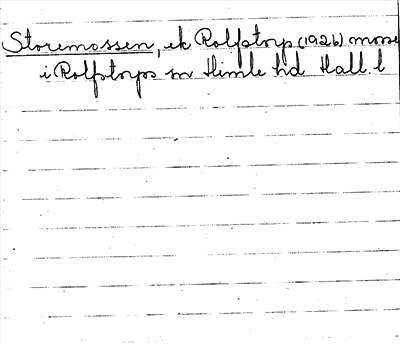 Storemossen, ek Rolfstorp (1926) mosse
i Rolfstorps sn Himle hd Hall. l